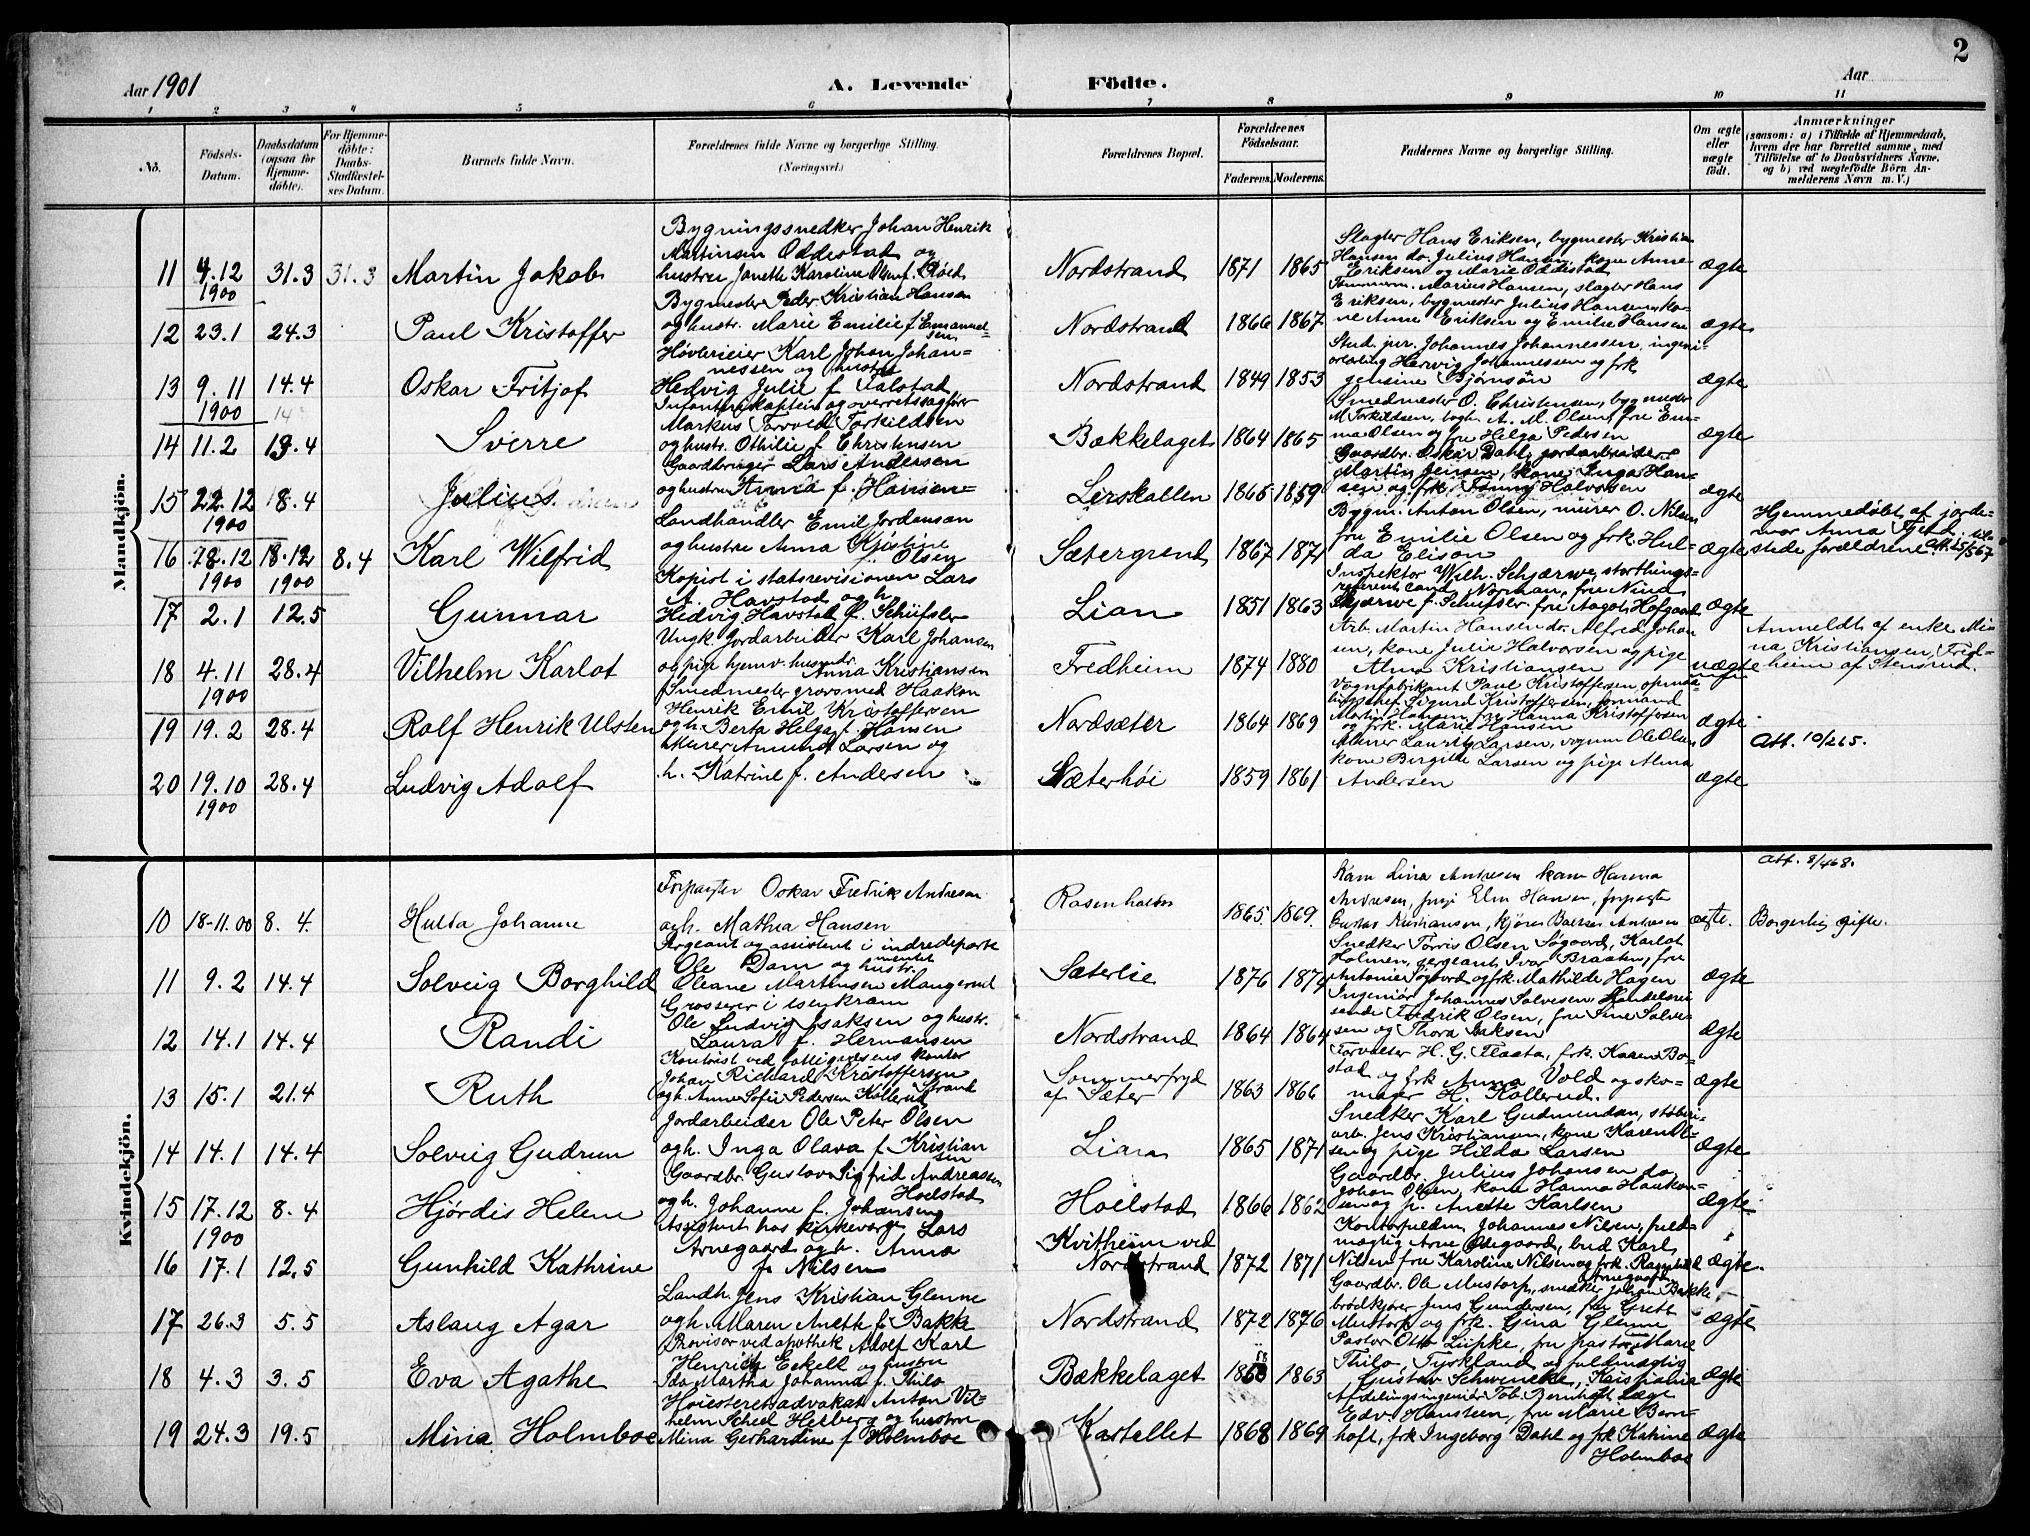 2
Aar 1901
A. Levende Födte.
Aar
1 2 3 4 5 6 7 8 9 10 11
No.
Födsels-Datum.
Daabsdatum (ogsaa for Hjemmedöbte).
For Hjemmedöbte: Daabs-Stadfæstelses Datum.
Barnets fulde Navn.
Forældrenes fulde Navne og borgerlige Stilling. (Næringsvei.)
Forældrenes Bopæl.
Forældrenes Födselsaar.
Faderens. Moderens.
Faddernes Navne og borgerlige Stilling.
Om ægte eller uægte födt.
Anmærkninger
(saasom: a) i Tilfælde af Hjemmedaab, hvem der har forrettet samme, med Tilföielse af to Daabsvidners Navne, og b) ved uægtefödte Börn Anmelderens Navn m. V.)
Mandkjön.
11 4.12 1900 31.3 31.3 Martin Jakob
Bygningssnedker Johan Henrik
Martinsen Oddestad og
hustru Janette Karoline Olsen f. Röed
Nordstrand 1871 1865
Slagter Hans Eriksen, bygmester Kristian
Hansen do. Julius Hansen, kone Anne
Eriksen og Marie Oddestad
ægte
12 23.1 24.3 Paul Kristoffer
Bygmester Peder Kristian Hansen
og hustr. Marie Emilie f. Emanuelsen
Nordstrand 1866 1867
Tømmerm. Marius Hansen, slagter Hans
Eriksen, bygmester Julius Hansen, ko-
ne Anne Eriksen og Emilie Hansen
ægte
13 9.11 1900 14.4 Oskar Fritjof
Høvlerieier Karl Johan Johan-
nessen og hustru
Hedvig Julie f. Falstad
Nordstrand 1849 1853
Stud. jur. Johannes Johannessen, ingeni-
ørlærling Hervig Johannessen og frk
Jensine Bjørnson
ægte
14 11.2 19.4 Sverre
Infanterikaptein og overretssagfører
Markus Torvald Torkildsen
og hustr. Othilie f. Christensen
Bækkelaget 1864 1865
Smedmester O. Christensen, bygmester
M Torkildsen, bogh. A. M. Olsen, fru Em-
ma Olsen og fru Helga Pedersen
ægte
15 22.12 1900 18.4 Julius
Gaardbruger Lars Andersen
og hustru Anna f. Hansen
Lerskallen 1865 1859
Gaardbr. Oskar Dahl, jordarbeider
Martin Jensen, kone Inga Han-
sen og frk. Fanny Halvorsen
ægte
16 18.12 1900 18.12 1900 8.4 Karl Wilfrid
Landhandler Emil Jordansan
og hustru Anna Kjistine
Olsen
Sætergrend 1867 1871
Bygm. Anton Olsen, murer O. Nilsen
fru Emilie Olsen og frk. Hul-
da Elison
ægte
Hjemmedøbt af jorde-
mor Anna Fjeld, til-
stede forældrene. Att. 25/567
17 2.1 12.5 Gunnar
Kopist i statsrevisionen Lars
A. Havstad og h.
Hedvig Havstad f. Schüfsler
Lian 1851 1863
Inspektør Wilh. Schjærve, storthings-
referent cand. Norman, fru Nina
Skjærwe f. Schüfsler, fru Aagot Hofgaard
ægte
18 4.11 1900 28.4 Vilhelm Karlot
Ungk. Jordarbeider Karl Johansen
og pige hjemv. husmdr
Anna Kristiansen
Fredheim 1874 1880
Arb. Martin Hansen do. Alfred Johan
sen, kone Julie Halvorsen og pige
Alma Kristiansen
uægte
Anmeldt af enke Mi-
na Kristiansen, Fred-
heim af Stensrud.
19 19.2 28.4 Rolf Henrik Ulsten
Smedmester grovsmed Haakon
Henrik Emil Kristoffersen
og h. Berta Helga f. Hansen
Nordsæter 1864 1869
Vognfabrikant Paul Kristoffersen, opmaa-
lingschef Sigurd Kristoffersen, formand
Martin Hansen, fru Hanna Kristoffersen
og frk. Marie Hansen
ægte
Att. 10/265.
20 19.10 1900 28.4 Ludvig Adolf
Murer Amund Larsen og
h. Katrine f. Andersen
Sæterhöi 1859 1861
Murer Lauritz Larsen, vognm Ole Olsen
kone Birgitte Larsen og pige Alma
Andersen
ægte
Kvindekjön.
10 18-11.00 8.4. Hulda Johanne
Forpagter Oskar Fredrik Andresen
og h. Mathea Hansen
Rosenholm 1865. 1869.
Kone Lina Andresen kone Hanna
Andresen, pige Elen Hansen, forpagter
Gustav Kristiansen, kjører Andresen
ægte.
Att. 8/468.
Borgerlig gifte.
11 9.2 14.4 Solveig Borghild
Sergeant og assistent i indredeparte
mentet
Ole Dam og hustr.
Oleane Martinsen Mangerud
Sæterlie 1876 1874
Snedker Torris Olsen Søgaard, Karlot
Holmen, sergeant Ivar Braaten, fru
Antonie Søgaard og frk. Mathilde Hagen
ægte
12 14.1 14.4 Randi
Grosserer i isenkram
Ole Ludvig Isaksen og hustr.
Laura f. Hermansen
Nordstrand 1864 1864
Ingeniør Johannes Solvesen Handelsrei
sende Fredrik Olsen, fru Sine Solve-
sen og Thora Isaksen
ægte
13 15.1 21.4 Ruth
Kontorist ved fattigvæsens kontor
Johan Richard Kristoffersen
Strand
og h. Anne Sofie Pedersen Kollerud
Sommerfryd
af Sæter 1863 1866
Forvalter H. G. Flaata, frk. Karen Bo-
stad og frk Anna Vold og sko-
mager H. Kollerud.
ægte
14 14.1 14.4 Solveig Gudrun
Jordarbeider Ole Peter Olsen
og h. Inga Olava f. Kristian
sen
Lian 1865 1871
Snedker Karl Gudmundsen, støberi-
arb. Jens Kristiansen, kone Karen Ol-
sen og pige Hilda Larsen
ægte
15 17.12 1900 8.4 Hjørdis Helene
Gaardbr. Gustav Sigfrid Andreassen
Hoelstad
og h. Johanne f. Johansen
Hoelstad 1866 1862
Gaardbr. Julius Johansen do
Johan Olsen, kone Hanna Haakon-
sen og p. Anette Karlsen
ægte
16 17.1 12.5 Gunhild Kathrine
Assistent hos kirkeverge Lars
Arnegaard og h. Anna
f. Nilsen
Kvitheim ved
Nordstrand 1872 1871
Kontorfuldm. Johannes Nilsen, fuld-
mægtig Arne Ødegaard, bud Karl
Nilsen fru Karoline Nilsen og frk. Ragnhild
Arnegaard
ægte.
17 26.3 5.5 Aslaug Agar
Landh. Jens Kristian Glenne
og h. Maren Aneth f. Bakke
Nordstrand 1872 1876
Gaardbr. Ole Mustorp, snedker Johan Bakke
brødkjører Jens Gundersen, fru Grett
Mustorp og frk. Gina Glenne
ægte
18 4.3 3.5 Eva Agathe
Provisor ved apothek Adolf Karl
Henrich Eckell og hustru
Ida Martha Johanna f. Thilo
Bækkelaget 1863
Pastor Otto Lüpke, fru pastor Marie
Thilo, Tyskland og fuldmægtig
Gustav Schwencke, Kristiania
ægte
19 24.3 19.5 Mina Holmboe
Høiesteretsadvokat Anton Vil-
helm Scheel Herberg og hustru
Mina Gerhardine f. Holmboe
Kastellet 1868 1869
Afdelingsingeniør Tob. Bernhoft læge
Edv. Hanssen, fru Marie Bern-
hoft, frk Ingeborg Dahl og frk Katrine
Holmboe
ægte